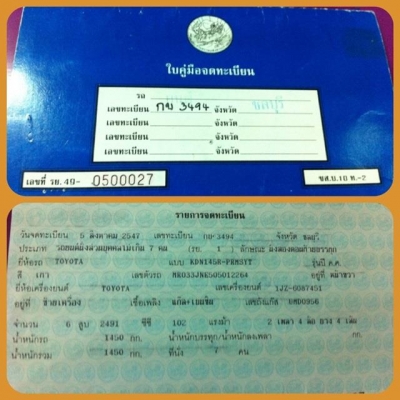 ใบคู่มือจดทะเบียน
รถ
เลขทะเบียน กข 3494 จังหวัด ชลบุรี
เลขทะเบียน จังหวัด
เลขทะเบียน จังหวัด
เลขทะเบียน จังหวัด
เลขที่ รย. 49- 0500027
ขส.บ.10 ท.-2
รายการจดทะเบียน
วันจดทะเบียน 5 สิงหาคม 2547 เลขทะเบียน กข-3494 จังหวัด ชลบุรี
ประเภท รถยนต์นั่งส่วนบุคคลไม่เกิน 7 คน (รย. 1 ) ลักษณะ
ยี่ห้อรถ TOYOTA แบบ รุ่นปี ค.ศ.
สี เทา เลขตัวรถ MR033JNE505012264 อยู่ที่
ยี่ห้อเครื่องยนต์ TOYOTA เลขเครื่องยนต์ 1JZ-6087451
อยู่ที่ ข้ายเครื่อง เชื้อเพลิง เลขถังแก๊ส
จำนวน 6 สูบ 2491 ซีซี 102 แรงม้า 2 เพลา 4 ล้อ ยาง 4 เส้น
น้ำหนักรถ 1450 กก. น้ำหนักบรรทุก/น้ำหนักลงเพลา กก.
น้ำหนักรวม 1450 กก. ที่นั่ง 7 คน